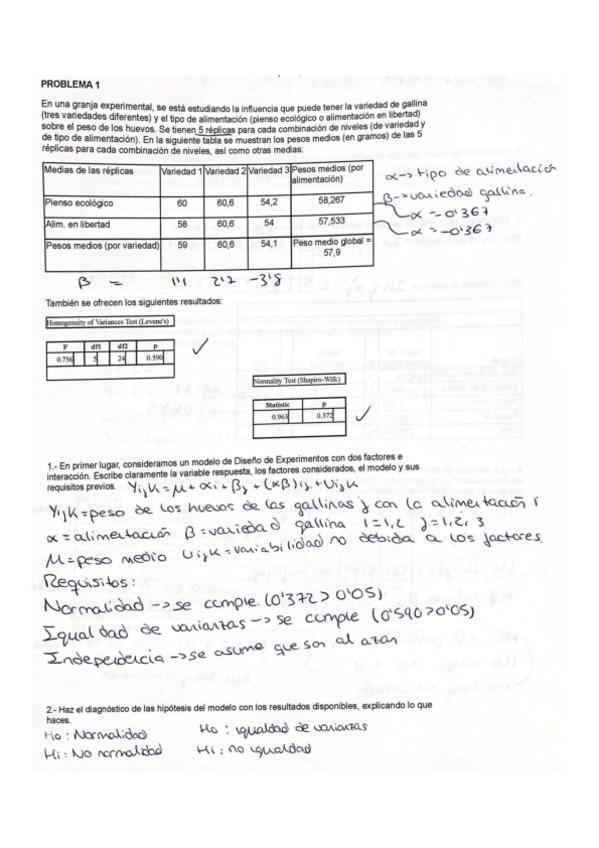 PROBLEMA 1
En una granja experimental, se está estudiando la influencia que puede tener la variedad de gallina
(tres variedades diferentes) y el tipo de alimentación (pienso ecológico o alimentación en libertad)
sobre el peso de los huevos. Se tienen 5 réplicas para cada combinación de niveles (de variedad y
de tipo de alimentación). En la siguiente tabla se muestran los pesos medios (en gramos) de las 5
réplicas para cada combinación de niveles, así como otras medias:
Medias de las réplicas Variedad 1 Variedad 2 Variedad 3 Pesos medios (por alimentación)
Pienso ecológico 60 60,6 54,2 58,267
Alim. en libertad 58 60,6 54 57,533
Pesos medios (por variedad) 59 60,6 54,1 Peso medio global = 57,9
α → tipo de alimentación
β → variedad gallina.
α = 0'367
α = -0'367
β = 1'1 2'7 -3'8
También se ofrecen los siguientes resultados:
Homogeneity of Variances Test (Levene's)
F df1 df2 p
0.756 5 24 0.590
Normality Test (Shapiro-Wilk)
Statistic p
0.963 0.372
1.- En primer lugar, consideramos un modelo de Diseño de Experimentos con dos factores e
interacción. Escribe claramente la variable respuesta, los factores considerados, el modelo y sus
requisitos previos. Yijk = μ + αi + βj + (αβ)ij + Uijk
Yijk = peso de los huevos de las gallinas j con la alimentación i
α = alimentación β = variedad gallina i = 1,2 j = 1,2,3
M = peso medio Uijk = variabilidad no debida a los factores.
Requisitos:
Normalidad → se cumple. (0'372 > 0'05)
Igualdad de varianzas → se cumple (0'590 > 0'05)
Independencia → se asume que son al azar
2.- Haz el diagnóstico de las hipótesis del modelo con los resultados disponibles, explicando lo que
haces.
Ho : Normalidad Ho : igualdad de varianzas
Hi : No normalidad Hi : no igualdad